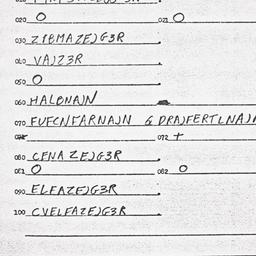 020 O 021 O
030 ZIBMAZE)G3R
040 VA)Z3R
050 O
060 HALBNA)N
070 FUFCNFARNA)N & DRA)FERTLNA)N
072 +
080 CENAZE)G3R
081 O 082 O
090 ELFAZE)G3R
100 CVELFAZE)G3R